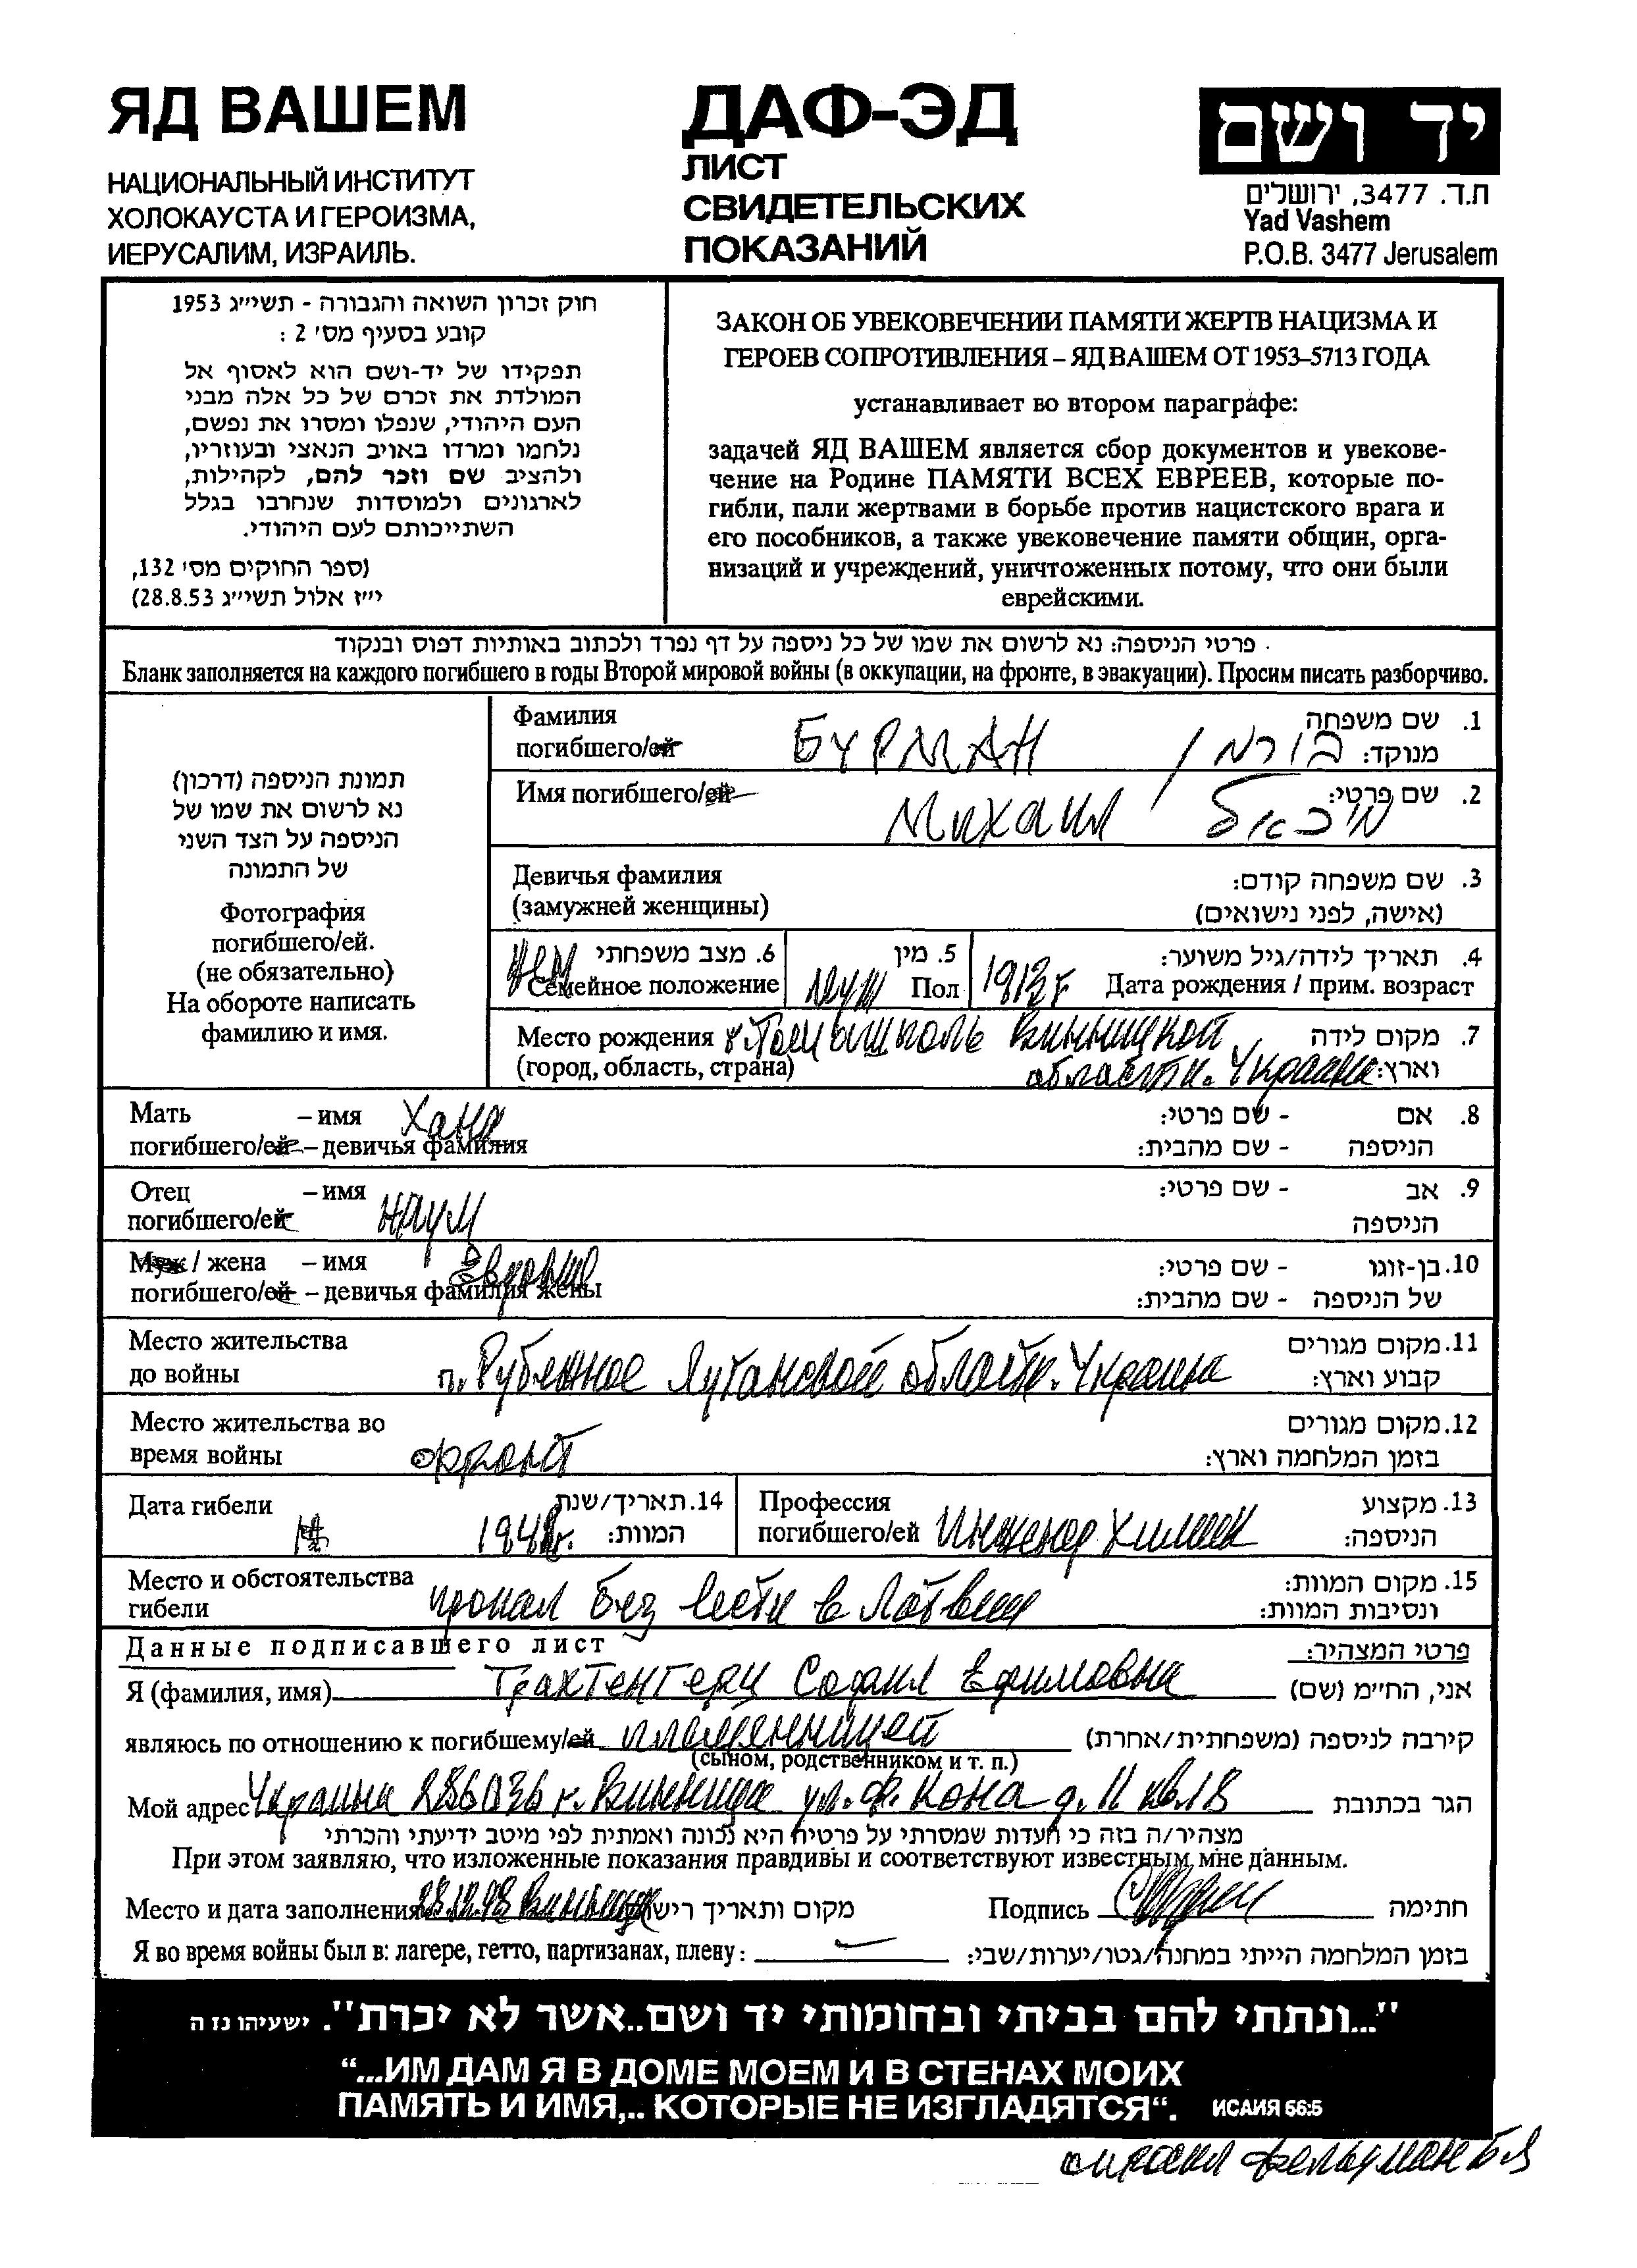 ЯД ВАШЕМ
НАЦИОНАЛЬНЫЙ ИНСТИТУТ
ХОЛОКАУСТА И ГЕРОИЗМА,
ИЕРУСАЛИМ, ИЗРАИЛЬ.
ДАФ-ЭД
ЛИСТ
СВИДЕТЕЛЬСКИХ
ПОКАЗАНИЙ
יד ושם
ת.ד. 3477, ירושלים
Yad Vashem
P.O.B. 3477 Jerusalem
חוק זכרון השואה והגבורה - תשי״ג 1953
קובע בסעיף מס׳ 2 :
תפקידו של יד-ושם הוא לאסוף אל
המולדת את זכרם של כל אלה מבני
העם היהודי, שנפלו ומסרו את נפשם,
נלחמו ומרדו באויב הנאצי ובעוזריו,
ולהציב שם וזכר להם, לקהילות,
לארגונים ולמוסדות שנחרבו בגלל
השתייכותם לעם היהודי.
(ספר החוקים מס׳ 132,
י״ז אלול תשי״ג 28.8.53)
ЗАКОН ОБ УВЕКОВЕЧЕНИИ ПАМЯТИ ЖЕРТВ НАЦИЗМА И
ГЕРОЕВ СОПРОТИВЛЕНИЯ – ЯД ВАШЕМ ОТ 1953–5713 ГОДА
устанавливает во втором параграфе:
задачей ЯД ВАШЕМ является сбор документов и увекове-
чение на Родине ПАМЯТИ ВСЕХ ЕВРЕЕВ, которые по-
гибли, пали жертвами в борьбе против нацистского врага и
его пособников, а также увековечение памяти общин, орга-
низаций и учреждений, уничтоженных потому, что они были
еврейскими.
פרטי הניספה: נא לרשום את שמו של כל ניספה על דף נפרד ולכתוב באותיות דפוס ובנקוד
Бланк заполняется на каждого погибшего в годы Второй мировой войны (в оккупации, на фронте, в эвакуации). Просим писать разборчиво.
תמונת הניספה (דרכון)
נא לרשום את שמו של
הניספה על הצד השני
של התמונה
Фотография
погибшего/ей.
(не обязательно)
На обороте написать
фамилию и имя.
Фамилия
погибшего/ей БУРМАН בורמן
1. שם משפחה
מנוקד:
Имя погибшего/ей Михаил מיכאל 2. שם פרטי:
Девичья фамилия
(замужней женщины)
3. שם משפחה קודם:
(אישה, לפני נישואים)
6. מצב משפחתי
Семейное положение
5. מין
муж Пол
4. תאריך לידה/גיל משוער:
Дата рождения / прим. возраст
Место рождения Винницкой
(город, область, страна) области. Украина
7. מקום לידה
וארץ:
Мать – имя Хана
погибшего/ей – девичья фамилия
8. אם - שם פרטי:
הניספה - שם מהבית:
Отец – имя
погибшего/ей Наум
9. אב - שם פרטי:
הניספה
Муж / жена – имя
погибшего/ей – девичья фамилия жены
10. בן-זוגו - שם פרטי:
של הניספה - שם מהבית:
Место жительства
до войны п. Рубежное Луганской области. Украина
11. מקום מגורים
קבוע וארץ:
Место жительства во
время войны фронт
12. מקום מגורים
בזמן המלחמה וארץ:
Дата гибели
14. תאריך/שנת
המוות:
Профессия
погибшего/ей Инженер химик
13. מקצוע
הניספה:
Место и обстоятельства
гибели пропал без вести в Латвии
15. מקום המוות:
ונסיבות המוות:
Данные подписавшего лист פרטי המצהיר:
Я (фамилия, имя) Трахтенгерц София Ефимовна אני, החי״מ (שם)
являюсь по отношению к погибшему/ей племянницей קירבה לניספה (משפחתית/אחרת)
(сыном, родственником и т. п.)
Мой адрес Украина 286036 г. Винница ул. Ф. Кона д. 11 кв. 18 הגר בכתובת
מצהיר/ה בזה כי העדות שמסרתי על פרטיה היא נכונה ואמתית לפי מיטב ידיעתי והכרתי
При этом заявляю, что изложенные показания правдивы и соответствуют известным мне данным.
Место и дата заполнения Винница מקום ותאריך
Подпись חתימה
Я во время войны был в: лагере, гетто, партизанах, плену: בזמן המלחמה הייתי במחנה/גטו/יערות/שבי:
"...ונתתי להם בביתי ובחומותי יד ושם..אשר לא יכרת". ישעיהו נז ה
“...ИМ ДАМ Я В ДОМЕ МОЕМ И В СТЕНАХ МОИХ
ПАМЯТЬ И ИМЯ,.. КОТОРЫЕ НЕ ИЗГЛАДЯТСЯ“. ИСАИЯ 56:5